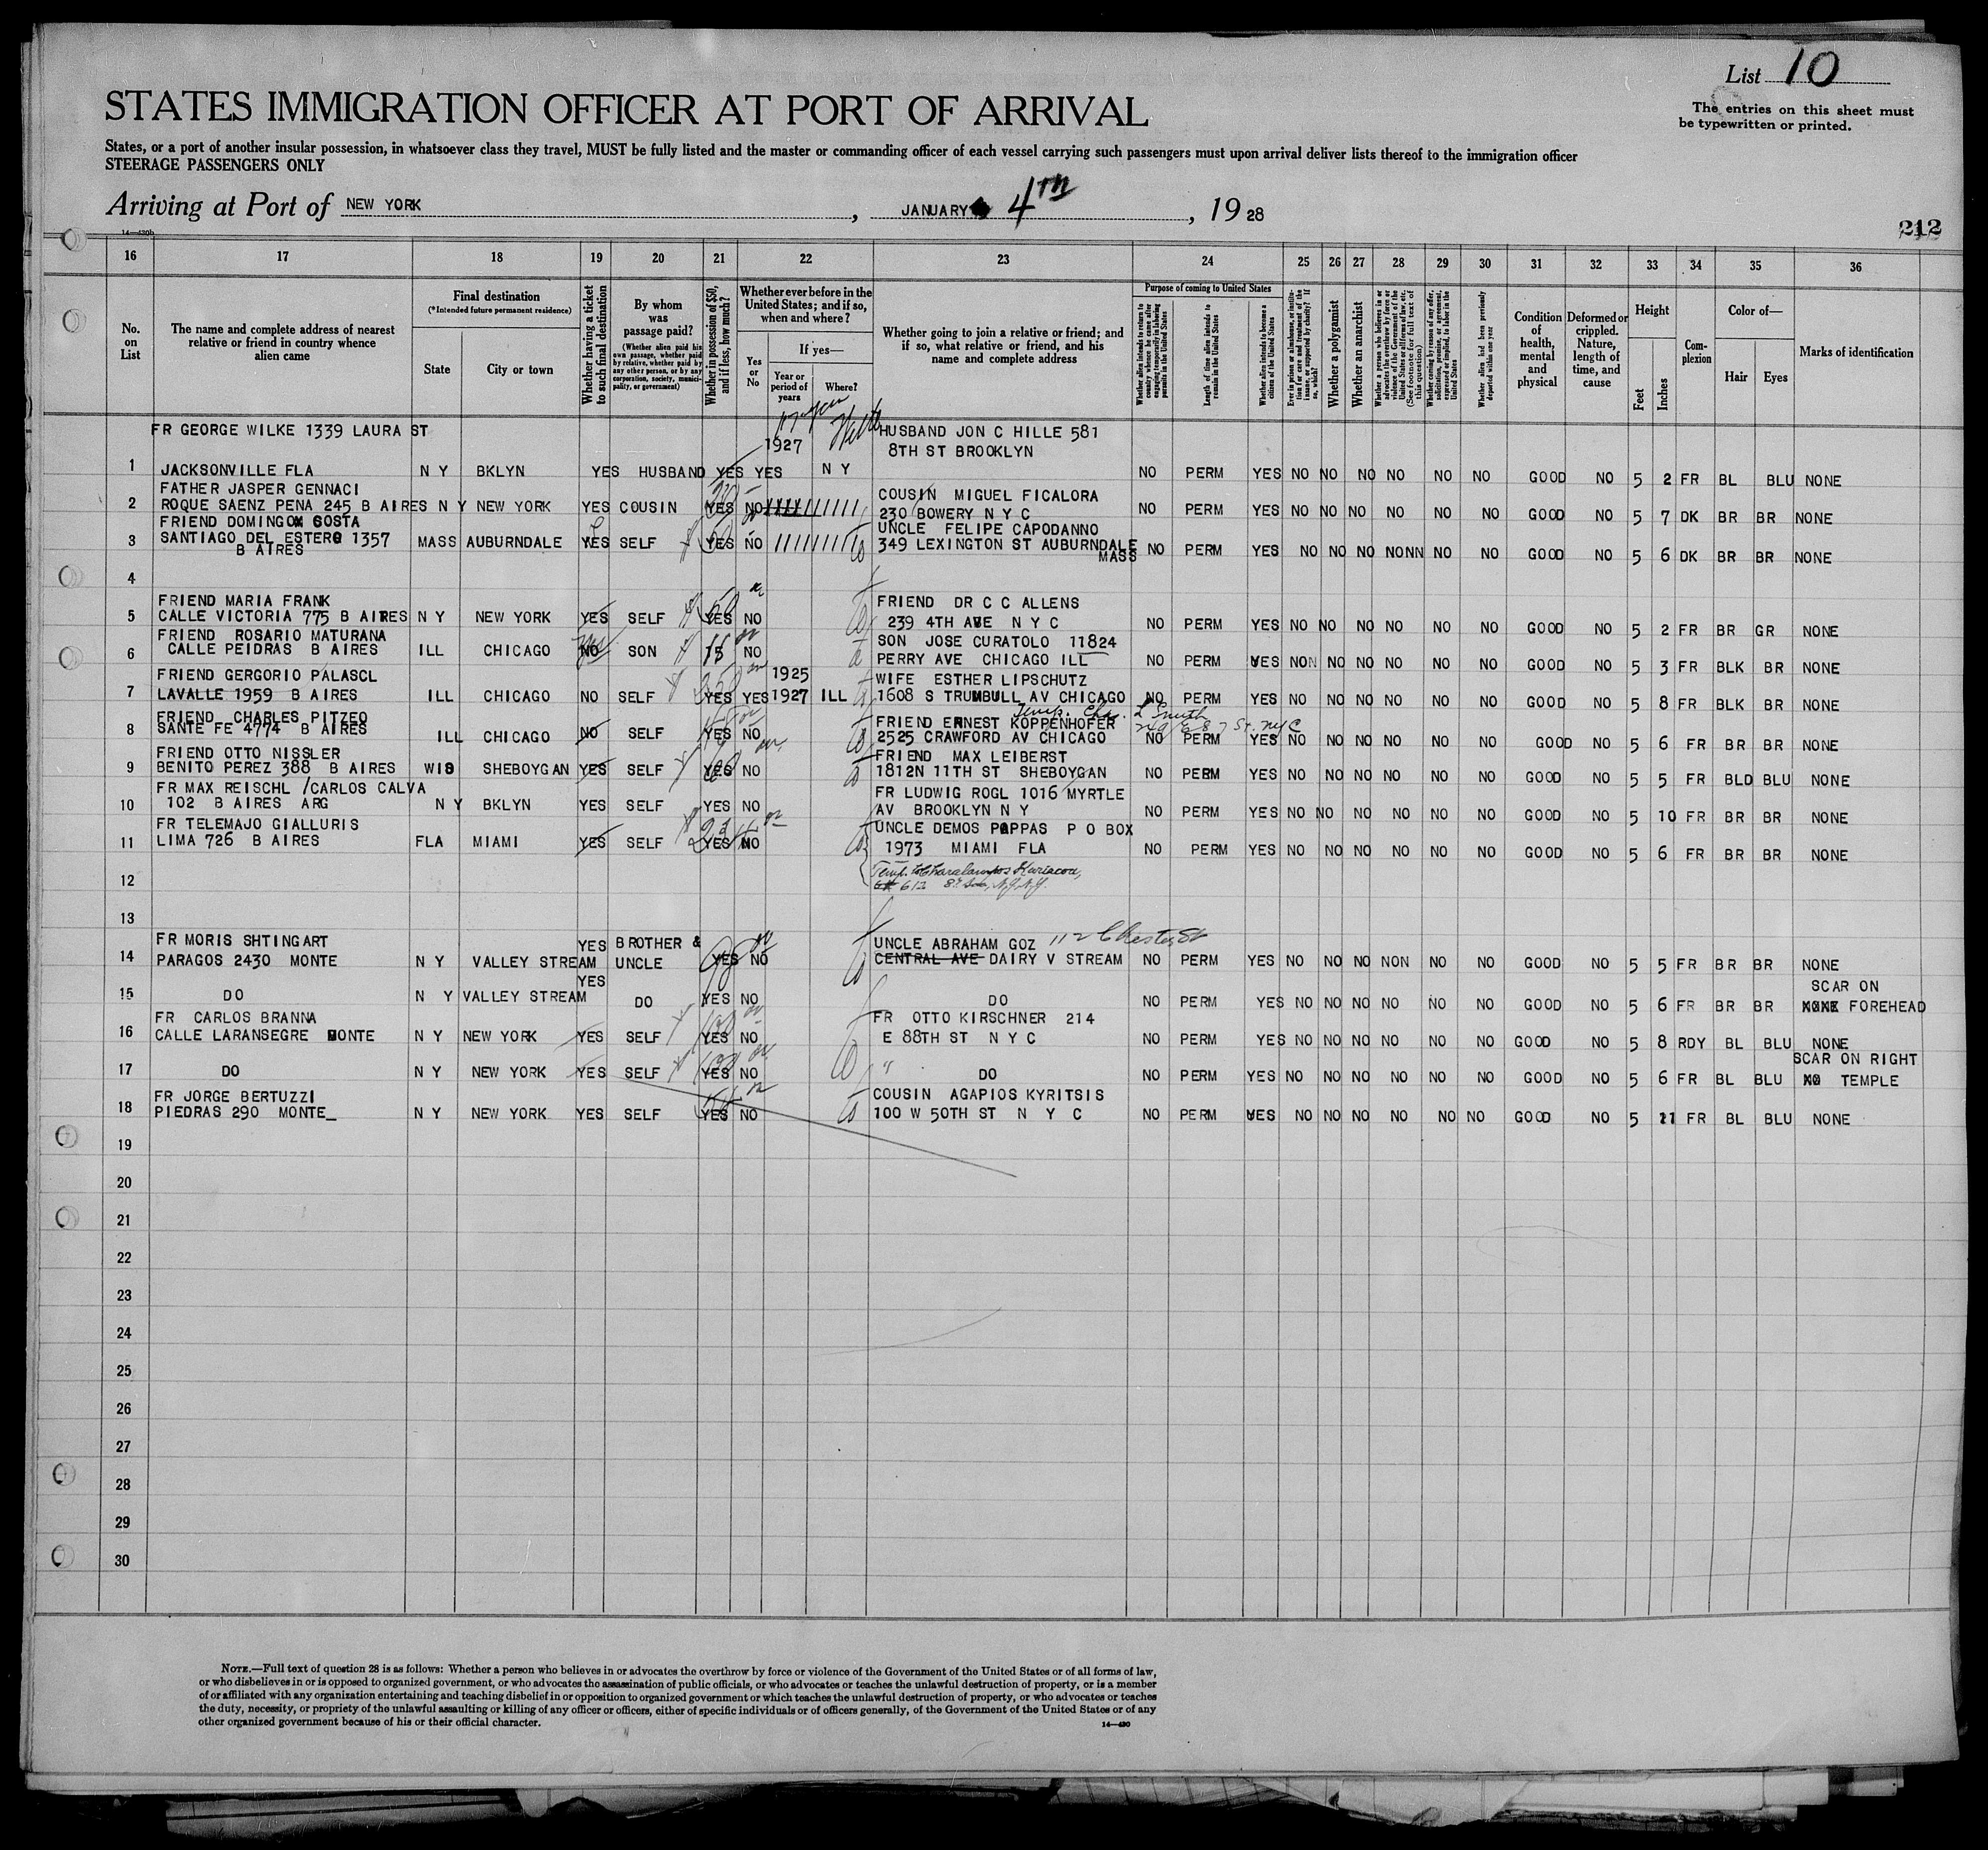 List 10
The entries on this sheet must
be typewritten or printed.
STATES IMMIGRATION OFFICER AT PORT OF ARRIVAL
States, or a port of another insular possession, in whatsoever class they travel, MUST be fully listed and the master or commanding officer of each vessel carrying such passengers must upon arrival deliver lists thereof to the immigration officer
STEERAGE PASSENGERS ONLY
Arriving at Port of NEW YORK, JANUARY 4TH, 1928
14—430b
212
16 17 18 19 20 21 22 23 24 25 26 27 28 29 30 31 32 33 34 35 36
No. on List
The name and complete address of nearest relative or friend in country whence alien came
Final destination
(*Intended future permanent residence)
State
City or town
Whether having a ticket to such final destination
By whom was passage paid?
(Whether alien paid his own passage, whether paid by relative, whether paid by any other person, or by any corporation, society, municipality, or government)
Whether in possession of $50, and if less, how much?
Whether ever before in the United States; and if so, when and where?
Yes or No
If yes—
Year or period of years
Where?
Whether going to join a relative or friend; and if so, what relative or friend, and his name and complete address
Purpose of coming to United States
Whether alien intends to return to country whence he came after engaging temporarily in laboring pursuits in the United States
Length of time alien intends to remain in the United States
Whether alien intends to become a citizen of the United States
Ever in prison or almshouse, or institution for care and treatment of the insane, or supported by charity? If so, which?
Whether a polygamist
Whether an anarchist
Whether a person who believes in or advocates the overthrow by force or violence of the Government of the United States or all forms of law, etc. (See footnote for full text of this question)
Whether coming by reason of any offer, solicitation, promise, or agreement, expressed or implied, to labor in the United States
Whether alien had been previously deported within one year
Condition of health, mental and physical
Deformed or crippled. Nature, length of time, and cause
Height
Feet
Inches
Complexion
Color of—
Hair
Eyes
Marks of identification
FR GEORGE WILKE 1339 LAURA ST 1927 HUSBAND JON C HILLE 581
8TH ST BROOKLYN
1 JACKSONVILLE FLA N Y BKLYN YES HUSBAND YES YES N Y NO PERM YES NO NO NO NO NO NO GOOD NO 5 2 FR BL BLU NONE
FATHER JASPER GENNACI COUSIN MIGUEL FICALORA
2 ROQUE SAENZ PENA 245 B AIRES N Y NEW YORK YES COUSIN YES NO 230 BOWERY N Y C NO PERM YES NO NO NO NO NO NO GOOD NO 5 7 DK BR BR NONE
FRIEND DOMINGO COSTA UNCLE FELIPE CAPODANNO
3 SANTIAGO DEL ESTERO 1357 MASS AUBURNDALE YES SELF YES NO 349 LEXINGTON ST AUBURNDALE NO PERM YES NO NO NO NONN NO NO GOOD NO 5 6 DK BR BR NONE
B AIRES MASS
4
FRIEND MARIA FRANK FRIEND DR C C ALLENS
5 CALLE VICTORIA 775 B AIRES N Y NEW YORK YES SELF YES NO 239 4TH AVE N Y C NO PERM YES NO NO NO NO NO NO GOOD NO 5 2 FR BR GR NONE
FRIEND ROSARIO MATURANA SON JOSE CURATOLO 11824
6 CALLE PEIDRAS B AIRES ILL CHICAGO NO SON 15 NO PERRY AVE CHICAGO ILL NO PERM YES NON NO NO NO NO NO GOOD NO 5 3 FR BLK BR NONE
FRIEND GERGORIO PALASCL 1925 WIFE ESTHER LIPSCHUTZ
7 LAVALLE 1959 B AIRES ILL CHICAGO NO SELF YES YES 1927 ILL 1608 S TRUMBULL AV CHICAGO NO PERM YES NO NO NO NO NO NO GOOD NO 5 8 FR BLK BR NONE
Temp. Chas. L Smith
FRIEND CHARLES PITZEO FRIEND ERNEST KOPPENHOFER 240 E 87 St. NYC
8 SANTE FE 4774 B AIRES ILL CHICAGO NO SELF YES NO 2525 CRAWFORD AV CHICAGO NO PERM YES NO NO NO NO NO NO GOOD NO 5 6 FR BR BR NONE
FRIEND OTTO NISSLER FRIEND MAX LEIBERST
9 BENITO PEREZ 388 B AIRES WIS SHEBOYGAN YES SELF YES NO 1812N 11TH ST SHEBOYGAN NO PERM YES NO NO NO NO NO NO GOOD NO 5 5 FR BLD BLU NONE
FR MAX REISCHL /CARLOS CALVA FR LUDWIG ROGL 1016 MYRTLE
10 102 B AIRES ARG N Y BKLYN YES SELF YES NO AV BROOKLYN N Y NO PERM YES NO NO NO NO NO NO GOOD NO 5 10 FR BR BR NONE
FR TELEMAJO GIALLURIS UNCLE DEMOS PAPPAS P O BOX
11 LIMA 726 B AIRES FLA MIAMI YES SELF YES NO 1973 MIAMI FLA NO PERM YES NO NO NO NO NO NO GOOD NO 5 6 FR BR BR NONE
Temp. to Charalampos Kuriacou,
12 612 8th Ave, N.Y. N.Y.
13
FR MORIS SHTINGART YES BROTHER & UNCLE ABRAHAM GOZ 112 Chester St
14 PARAGOS 2430 MONTE N Y VALLEY STREAM UNCLE YES NO CENTRAL AVE DAIRY V STREAM NO PERM YES NO NO NO NON NO NO GOOD NO 5 5 FR BR BR NONE
YES SCAR ON
15 DO N Y VALLEY STREAM DO YES NO DO NO PERM YES NO NO NO NO NO NO GOOD NO 5 6 FR BR BR NONE FOREHEAD
FR CARLOS BRANNA FR OTTO KIRSCHNER 214
16 CALLE LARANSEGRE MONTE N Y NEW YORK YES SELF YES NO E 88TH ST N Y C NO PERM YES NO NO NO NO NO NO GOOD NO 5 8 RDY BL BLU NONE
SCAR ON RIGHT
17 DO N Y NEW YORK YES SELF YES NO " DO NO PERM YES NO NO NO NO NO NO GOOD NO 5 6 FR BL BLU NO TEMPLE
FR JORGE BERTUZZI COUSIN AGAPIOS KYRITSIS
18 PIEDRAS 290 MONTE_ N Y NEW YORK YES SELF YES NO 100 W 50TH ST N Y C NO PERM YES NO NO NO NO NO NO GOOD NO 5 11 FR BL BLU NONE
19
20
21
22
23
24
25
26
27
28
29
30
NOTE.—Full text of question 28 is as follows: Whether a person who believes in or advocates the overthrow by force or violence of the Government of the United States or of all forms of law,
or who disbelieves in or is opposed to organized government, or who advocates the assassination of public officials, or who advocates or teaches the unlawful destruction of property, or is a member
of or affiliated with any organization entertaining and teaching disbelief in or opposition to organized government or which teaches the unlawful destruction of property, or who advocates or teaches
the duty, necessity, or propriety of the unlawful assaulting or killing of any officer or officers, either of specific individuals or of officers generally, of the Government of the United States or of any
other organized government because of his or their official character.
14—430